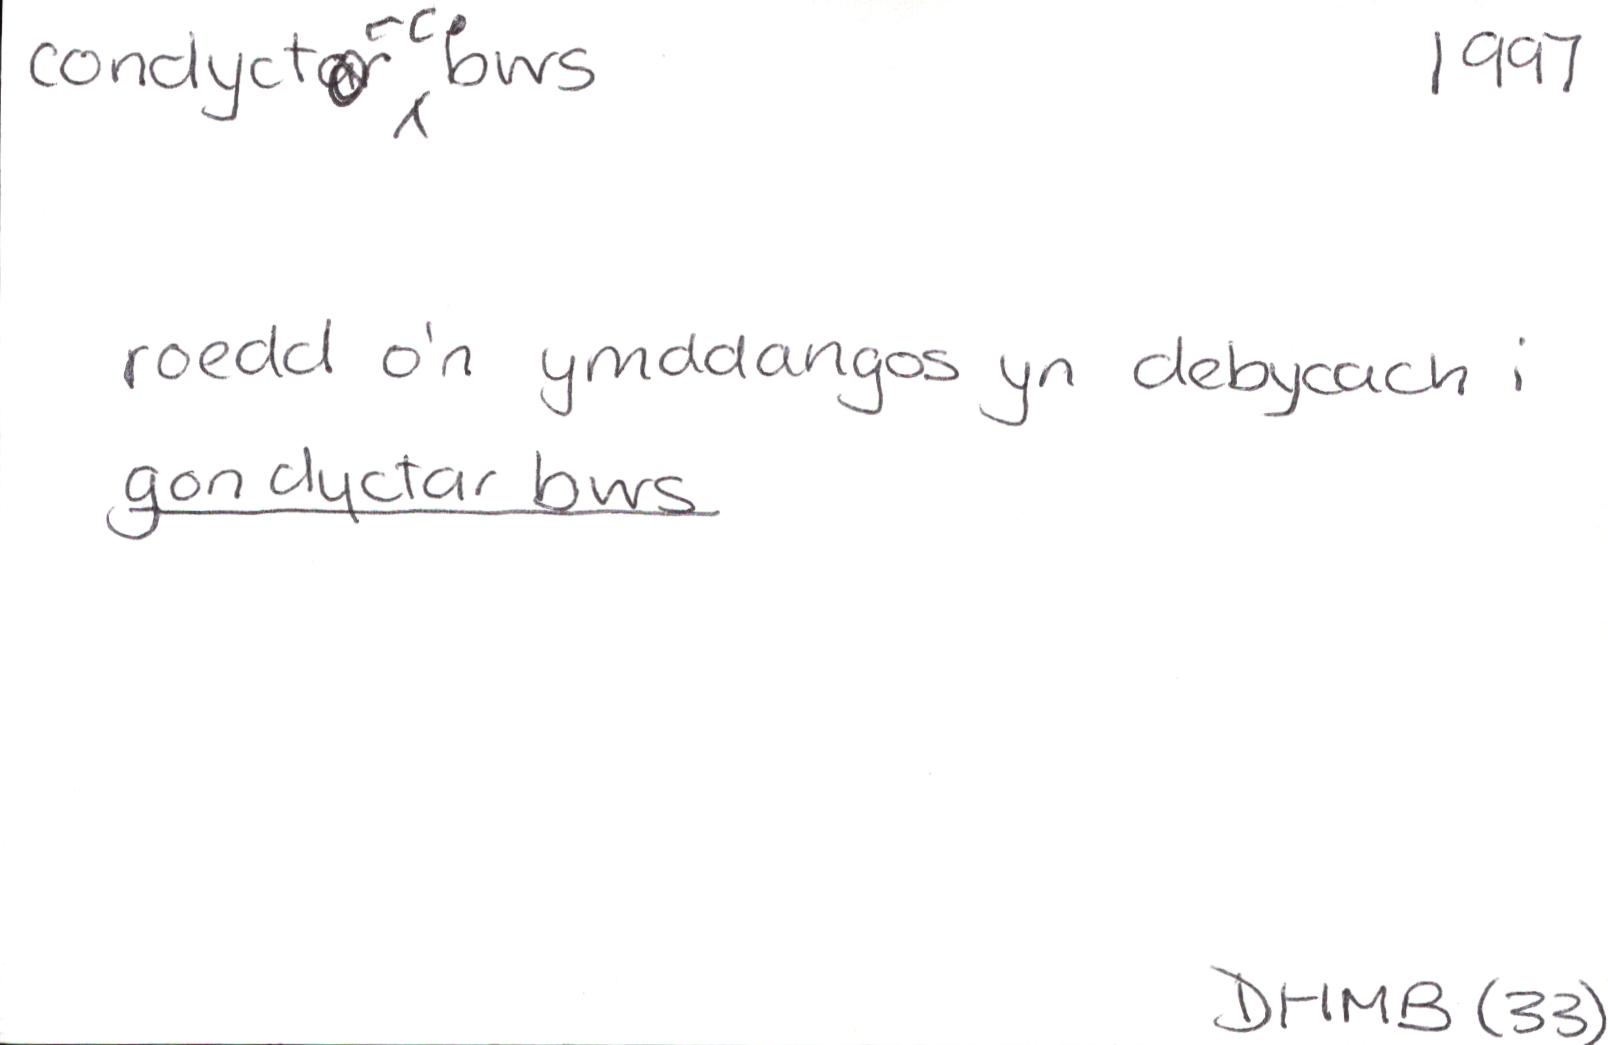 condyctor -c. bws 1997
roedd o'n ymddangos yn debycach i
gondyctar bws
DHMB (33)